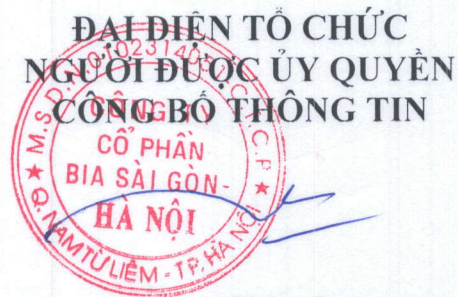 ĐẠI DIỆN TỔ CHỨC
NGƯỜI ĐƯỢC ỦY QUYỀN
CÔNG BỐ THÔNG TIN
CÔNG TY
CỔ PHẦN
BIA SÀI GÒN-
HÀ NỘI
Q. NAM TỪ LIÊM - TP. HÀ NỘI